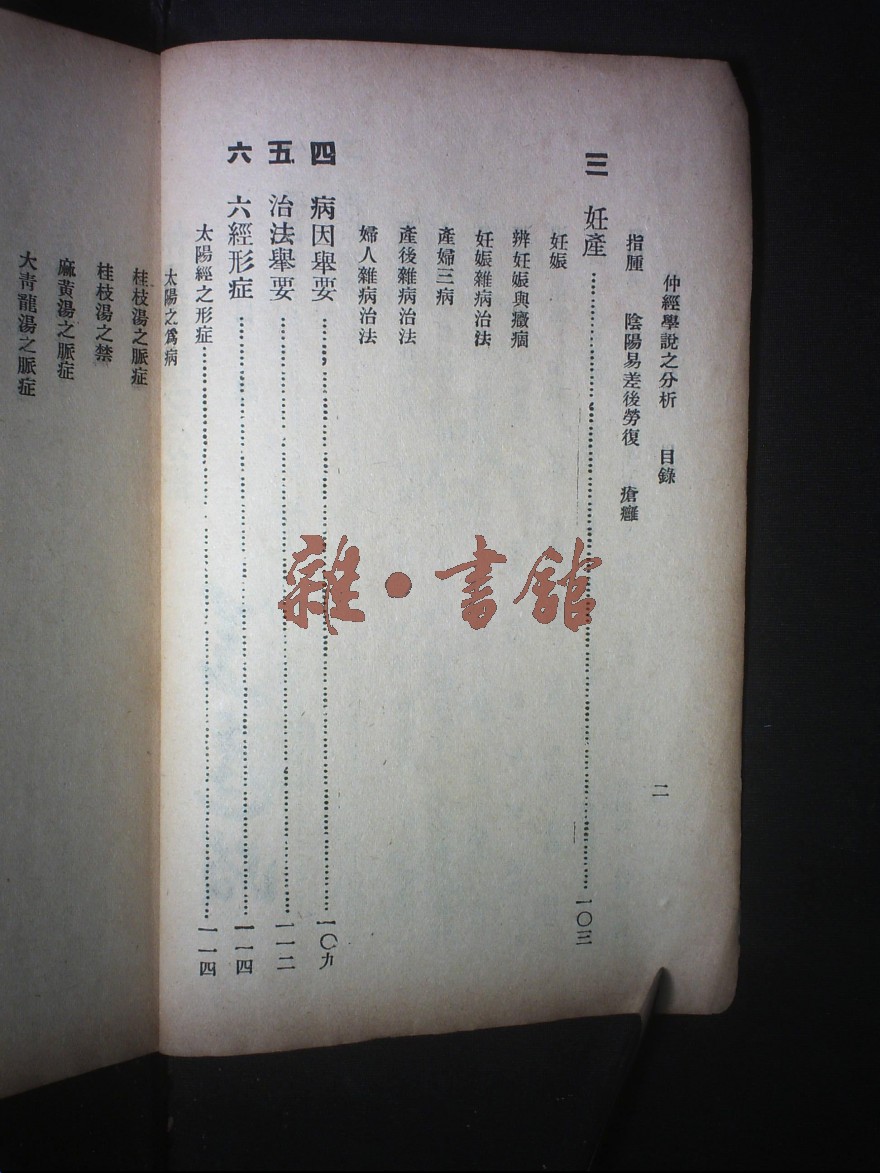 仲經學說之分析 目錄 二
指腫 陰陽易差後勞復 瘡癰
三 妊產 一〇三
妊娠
辨妊娠與癥痼
妊娠雜病治法
產婦三病
產後雜病治法
婦人雜病治法
四 病因舉要 一〇九
五 治法舉要 一一二
六 六經形症 一一四
太陽經之形症 一一四
太陽之爲病
桂枝湯之脈症
桂枝湯之禁
麻黃湯之脈症
大靑龍湯之脈症
雜·書館